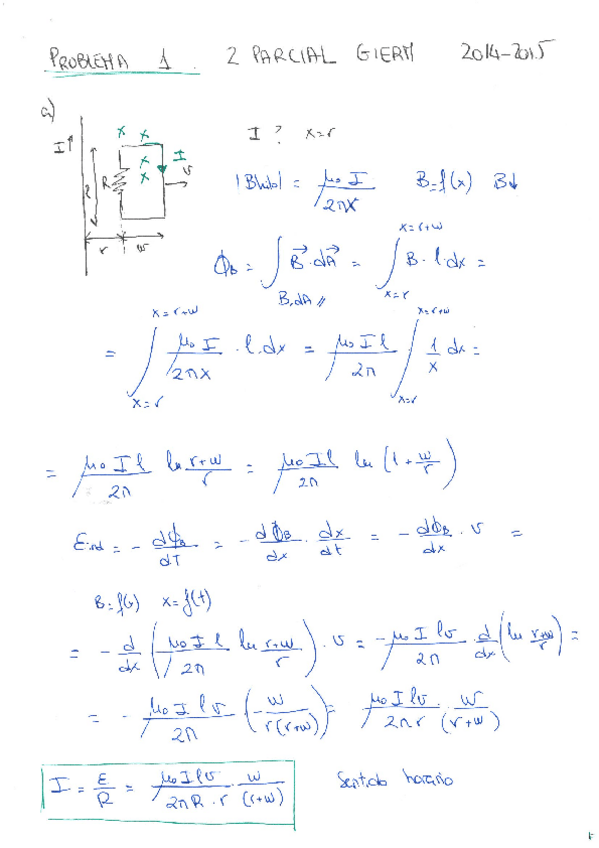 PROBLEMA 1. 2 PARCIAL GIERM 2014-2015
a)
I↑ x x x x I R l v r w
I? x=r
|B hilo| = μ₀ I / 2πx B=f(x) B↓
ϕ_B = ∫ B⃗·dA⃗ = ∫_{x=r}^{x=r+w} B·l·dx =
B, dA //
= ∫_{x=r}^{x=r+w} μ₀ I / 2πx · l·dx = μ₀ I l / 2π ∫_{x=r}^{x=r+w} 1/x dx =
= μ₀ I l / 2π ln (r+w)/r = μ₀ I l / 2π ln (1 + w/r)
Eind = - dϕ_B/dT = - dϕ_B/dx · dx/dt = - dϕ_B/dx · v =
B=f(x) x=f(t)
= - d/dx (μ₀ I l / 2π ln (r+w)/r) · v = - μ₀ I l v / 2π · d/dx (ln (r+w)/r) =
= - μ₀ I l v / 2π (- w / r(r+w)) = μ₀ I l v / 2πr · w / (r+w)
I = E/R = μ₀ I l v / 2πR·r · w / (r+w) Sentido horario